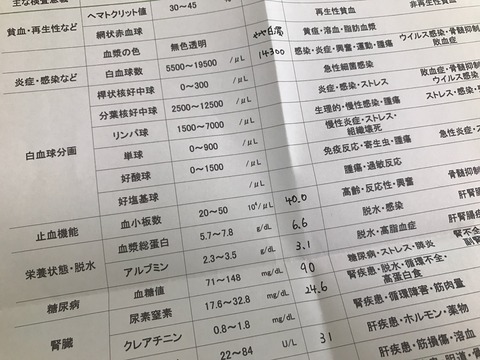 主な検査意義
ヘマトクリット値 30~45 %
再生性貧血
貧血・再生性など 網状赤血球
血漿の色 無色透明 やや白濁 黄疸・溶血・脂肪血症
白血球数 5500~19500 /μL 14300 感染・炎症・興奮・運動・腫瘍 ウイルス感染・骨髄抑制 敗血症
炎症・感染など 桿状核好中球 0~300 /μL 急性細菌感染
分葉核好中球 2500~12500 /μL 炎症・感染・ストレス 敗血症・骨髄抑制 ウイルス感染
白血球分画 リンパ球 1500~7000 /μL 生理的・慢性感染・腫瘍 ストレス・感染
単球 0~900 /μL 慢性炎症・ストレス・組織壊死
好酸球 0~1500 /μL 免疫反応・寄生虫・腫瘍
好塩基球 /μL 腫瘍・過敏反応
止血機能 血小板数 20~50 10⁴/μL 40.0 高齢・反応性・興奮 骨髄抑制
栄養状態・脱水 血漿総蛋白 5.7~7.8 g/dL 6.6 脱水・感染
アルブミン 2.3~3.5 g/dL 3.1 脱水・高脂血症
糖尿病 血糖値 71~148 mg/dL 90 糖尿病・ストレス・膵炎
腎臓 尿素窒素 17.6~32.8 mg/dL 24.6 腎疾患・脱水・循環不全・高蛋白食
クレアチニン 0.8~1.8 mg/dL 腎疾患・循環障害・筋肉量
22~84 U/L 31 肝疾患・ホルモン・薬物
肝疾患・筋損傷・溶血